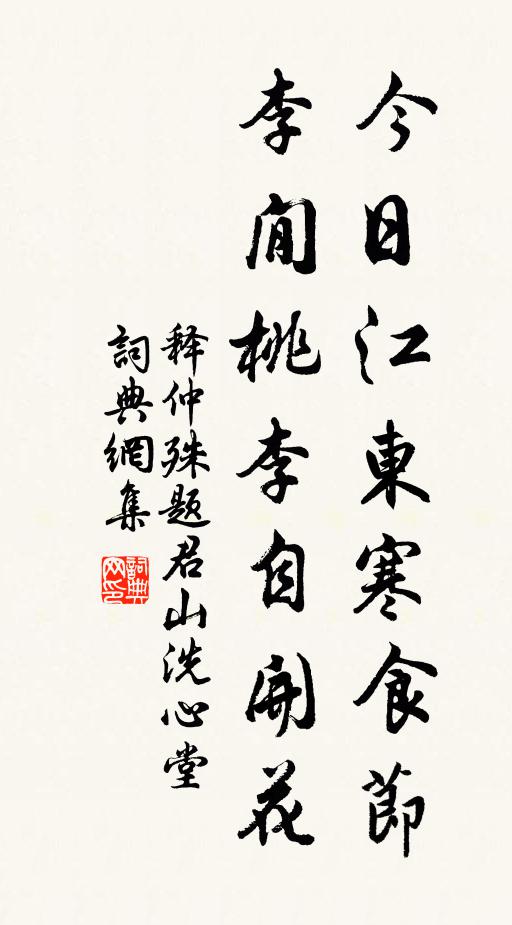 今日江東寒食節
李閒桃李自開花
释仲殊题君山洗心堂
詞典網集
詞典网印